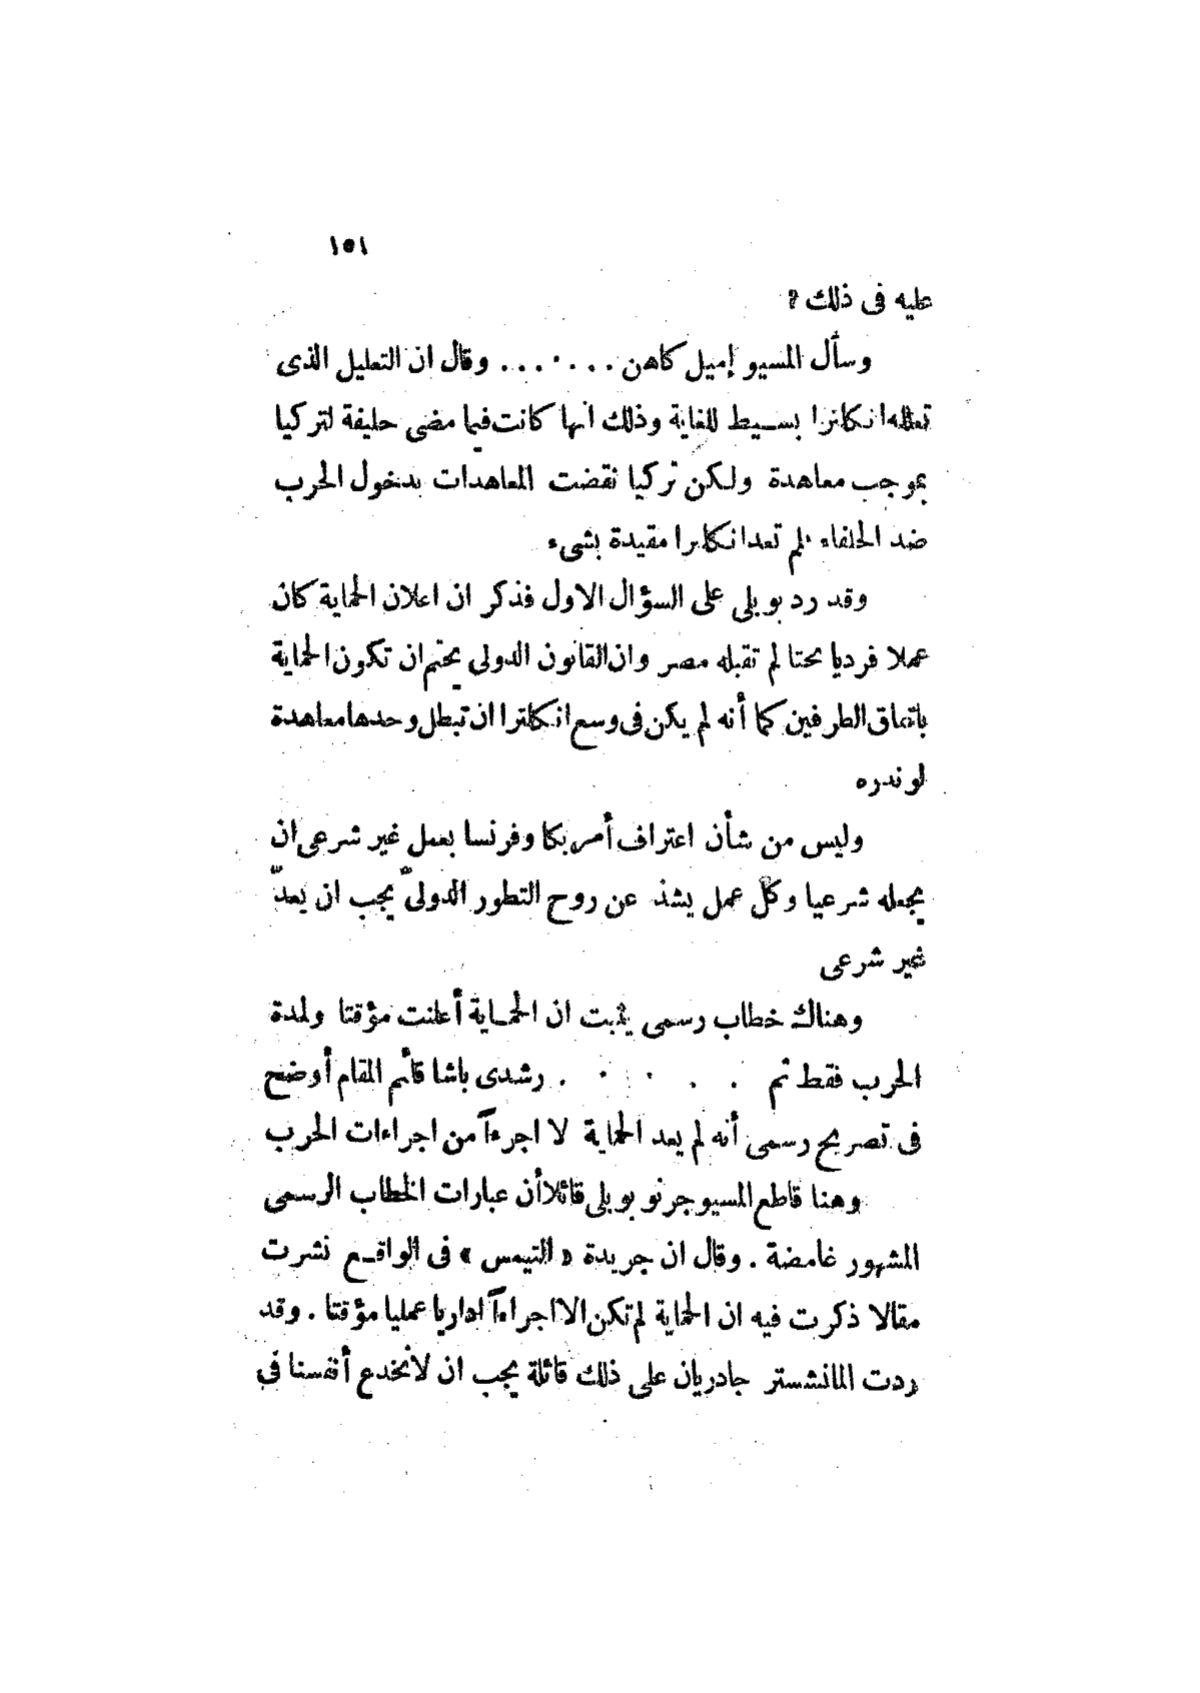 ١٥١
عليه فى ذلك ؟
وسأل المسيو إميل كاهن . . . ٠ . . . وقال ان التعليل الذى
تعلله انكلترا بسيط للغاية وذلك انها كانت فيما مضى حليفة لتركيا
بموجب معاهدة ولكن تركيا نقضت المعاهدات بدخول الحرب
ضد الحلفاء فلم تعد انكلترا مقيدة بشىء
وقد رد بويلى على السؤال الاول فذكر ان اعلان الحماية كان
عملا فرديا بحتا لم تقبله مصر وان القانون الدولى يحتم ان تكون الحماية
باتفاق الطرفين كما أنه لم يكن فى وسع انكلترا ان تبطل وحدها معاهدة
لوندره
وليس من شأن اعتراف أمريكا وفرنسا بعمل غير شرعى ان
يجعله شرعيا وكل عمل يشذ عن روح التطور الدولىّ يجب ان يعدّ
غير شرعى
وهناك خطاب رسمى يثبت ان الحماية أعلنت مؤقتا ولمدة
الحرب فقط ثم . . . ٠ ٠ . رشدى باشا قائم المقام أوضح
فى تصريح رسمى أنه لم يعد الحماية لا اجرءآ من اجراءات الحرب
وهنا قاطع المسيو جرنو بويلى قائلا أن عبارات الخطاب الرسمى
المشهور غامضة . وقال ان جريدة « التيمس » فى الواقع نشرت
مقالا ذكرت فيه ان الحماية لم تكن الا اجراءآ اداريا عمليا مؤقتا . وقد
ردت المانشستر جادريان على ذلك قائلة يجب ان لا نخدع أنفسنا فى